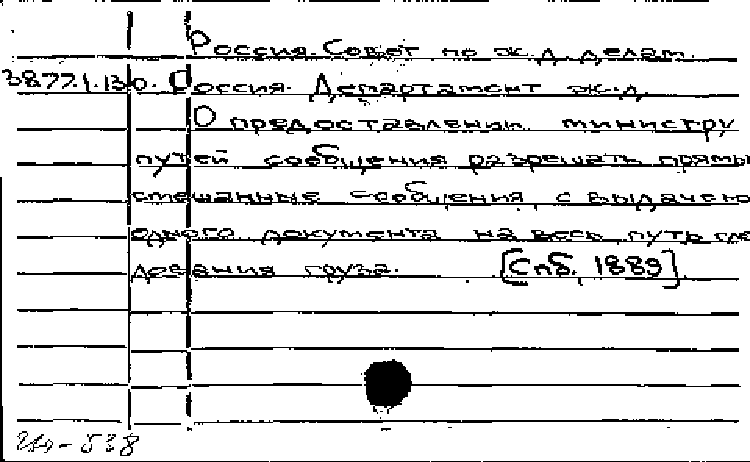 Россия. Совет по ж.д. делам.
38.77.1.130. Россия. Департамент ж.д.
О предоставлении министру
путей сообщения разрешать прямы
смешанные сообщения, с выдачею
одного документа на весь путь сле
дования груза. [Спб, 1889].
-538